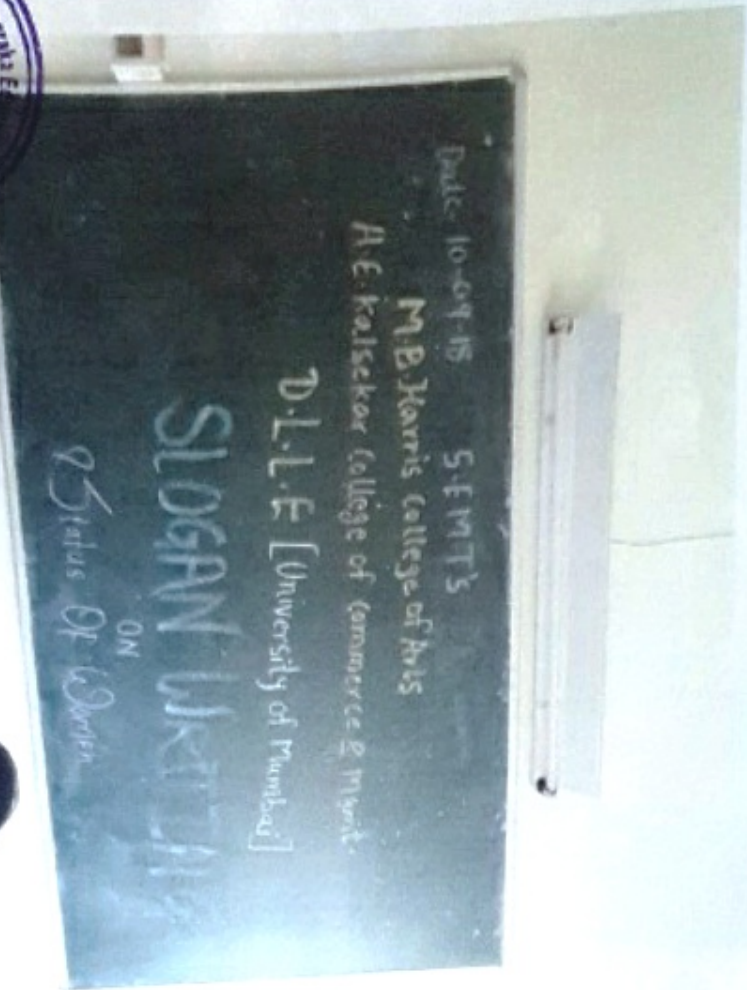 Date- 10-09-15 S.E.M.T'S
M.B.Harris College of Arts
A.E.Kalsekar College of Commerce & Mgmt.
D.L.L.E [University of Mumbai]
SLOGAN
ON
Status Of Women